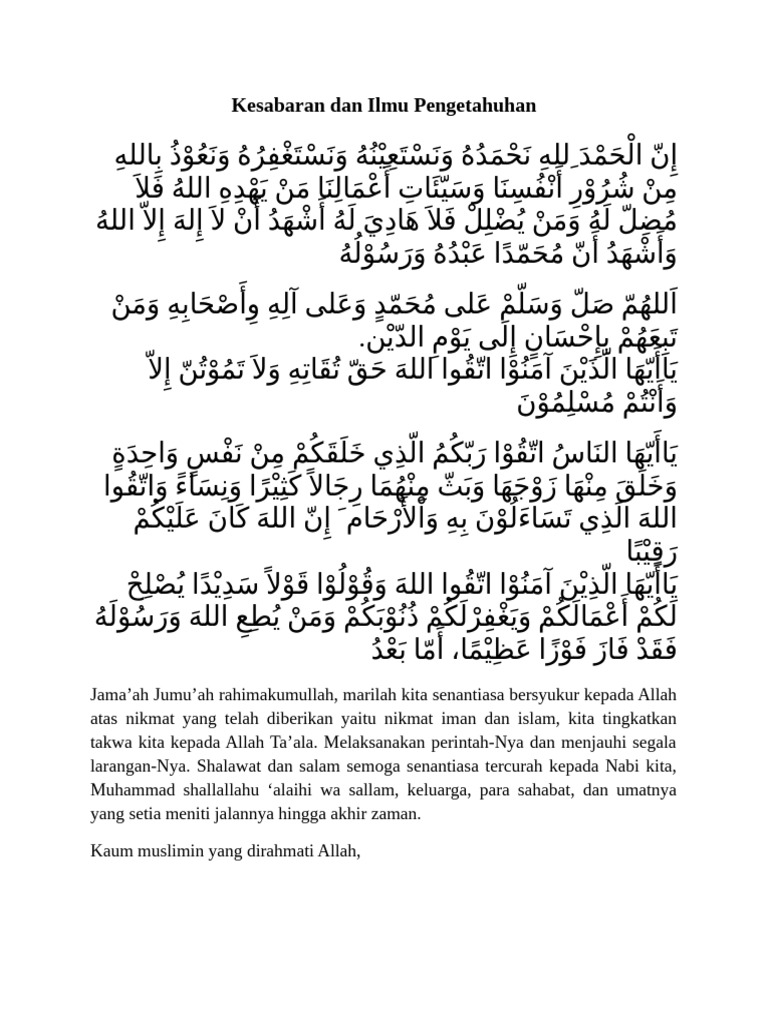 Kesabaran dan Ilmu Pengetahuhan
إِنّ الْحَمْدَ ِللهِ نَحْمَدُهُ وَنَسْتَعِيْنُهُ وَنَسْتَغْفِرُهُ وَنَعُوْذُ بِاللهِ
مِنْ شُرُوْرِ أَنْفُسِنَا وَسَيّئَاتِ أَعْمَالِنَا مَنْ يَهْدِهِ اللهُ فَلاَ
مُضِلّ لَهُ وَمَنْ يُضْلِلْ فَلاَ هَادِيَ لَهُ أَشْهَدُ أَنْ لاَ إِلهَ إِلاّ اللهُ
وَأَشْهَدُ أَنّ مُحَمّدًا عَبْدُهُ وَرَسُوْلُهُ
اَللهُمّ صَلّ وَسَلّمْ عَلى مُحَمّدٍ وَعَلى آلِهِ وِأَصْحَابِهِ وَمَنْ
تَبِعَهُمْ بِإِحْسَانٍ إِلَى يَوْمِ الدّيْن.
يَاأَيّهَا الّذَيْنَ آمَنُوْا اتّقُوا اللهَ حَقّ تُقَاتِهِ وَلاَ تَمُوْتُنّ إِلاّ
وَأَنْتُمْ مُسْلِمُوْنَ
يَاأَيّهَا النَاسُ اتّقُوْا رَبّكُمُ الّذِي خَلَقَكُمْ مِنْ نَفْسٍ وَاحِدَةٍ
وَخَلَقَ مِنْهَا زَوْجَهَا وَبَثّ مِنْهُمَا رِجَالاً كَثِيْرًا وَنِسَاءً وَاتّقُوا
اللهَ الَذِي تَسَاءَلُوْنَ بِهِ وَاْلأَرْحَام َ إِنّ اللهَ كَانَ عَلَيْكُمْ
رَقِيْبًا
يَاأَيّهَا الّذِيْنَ آمَنُوْا اتّقُوا اللهَ وَقُوْلُوْا قَوْلاً سَدِيْدًا يُصْلِحْ
لَكُمْ أَعْمَالَكُمْ وَيَغْفِرْلَكُمْ ذُنُوْبَكُمْ وَمَنْ يُطِعِ اللهَ وَرَسُوْلَهُ
فَقَدْ فَازَ فَوْزًا عَظِيْمًا، أَمّا بَعْدُ
Jama’ah Jumu’ah rahimakumullah, marilah kita senantiasa bersyukur kepada Allah
atas nikmat yang telah diberikan yaitu nikmat iman dan islam, kita tingkatkan
takwa kita kepada Allah Ta’ala. Melaksanakan perintah-Nya dan menjauhi segala
larangan-Nya. Shalawat dan salam semoga senantiasa tercurah kepada Nabi kita,
Muhammad shallallahu ‘alaihi wa sallam, keluarga, para sahabat, dan umatnya
yang setia meniti jalannya hingga akhir zaman.
Kaum muslimin yang dirahmati Allah,